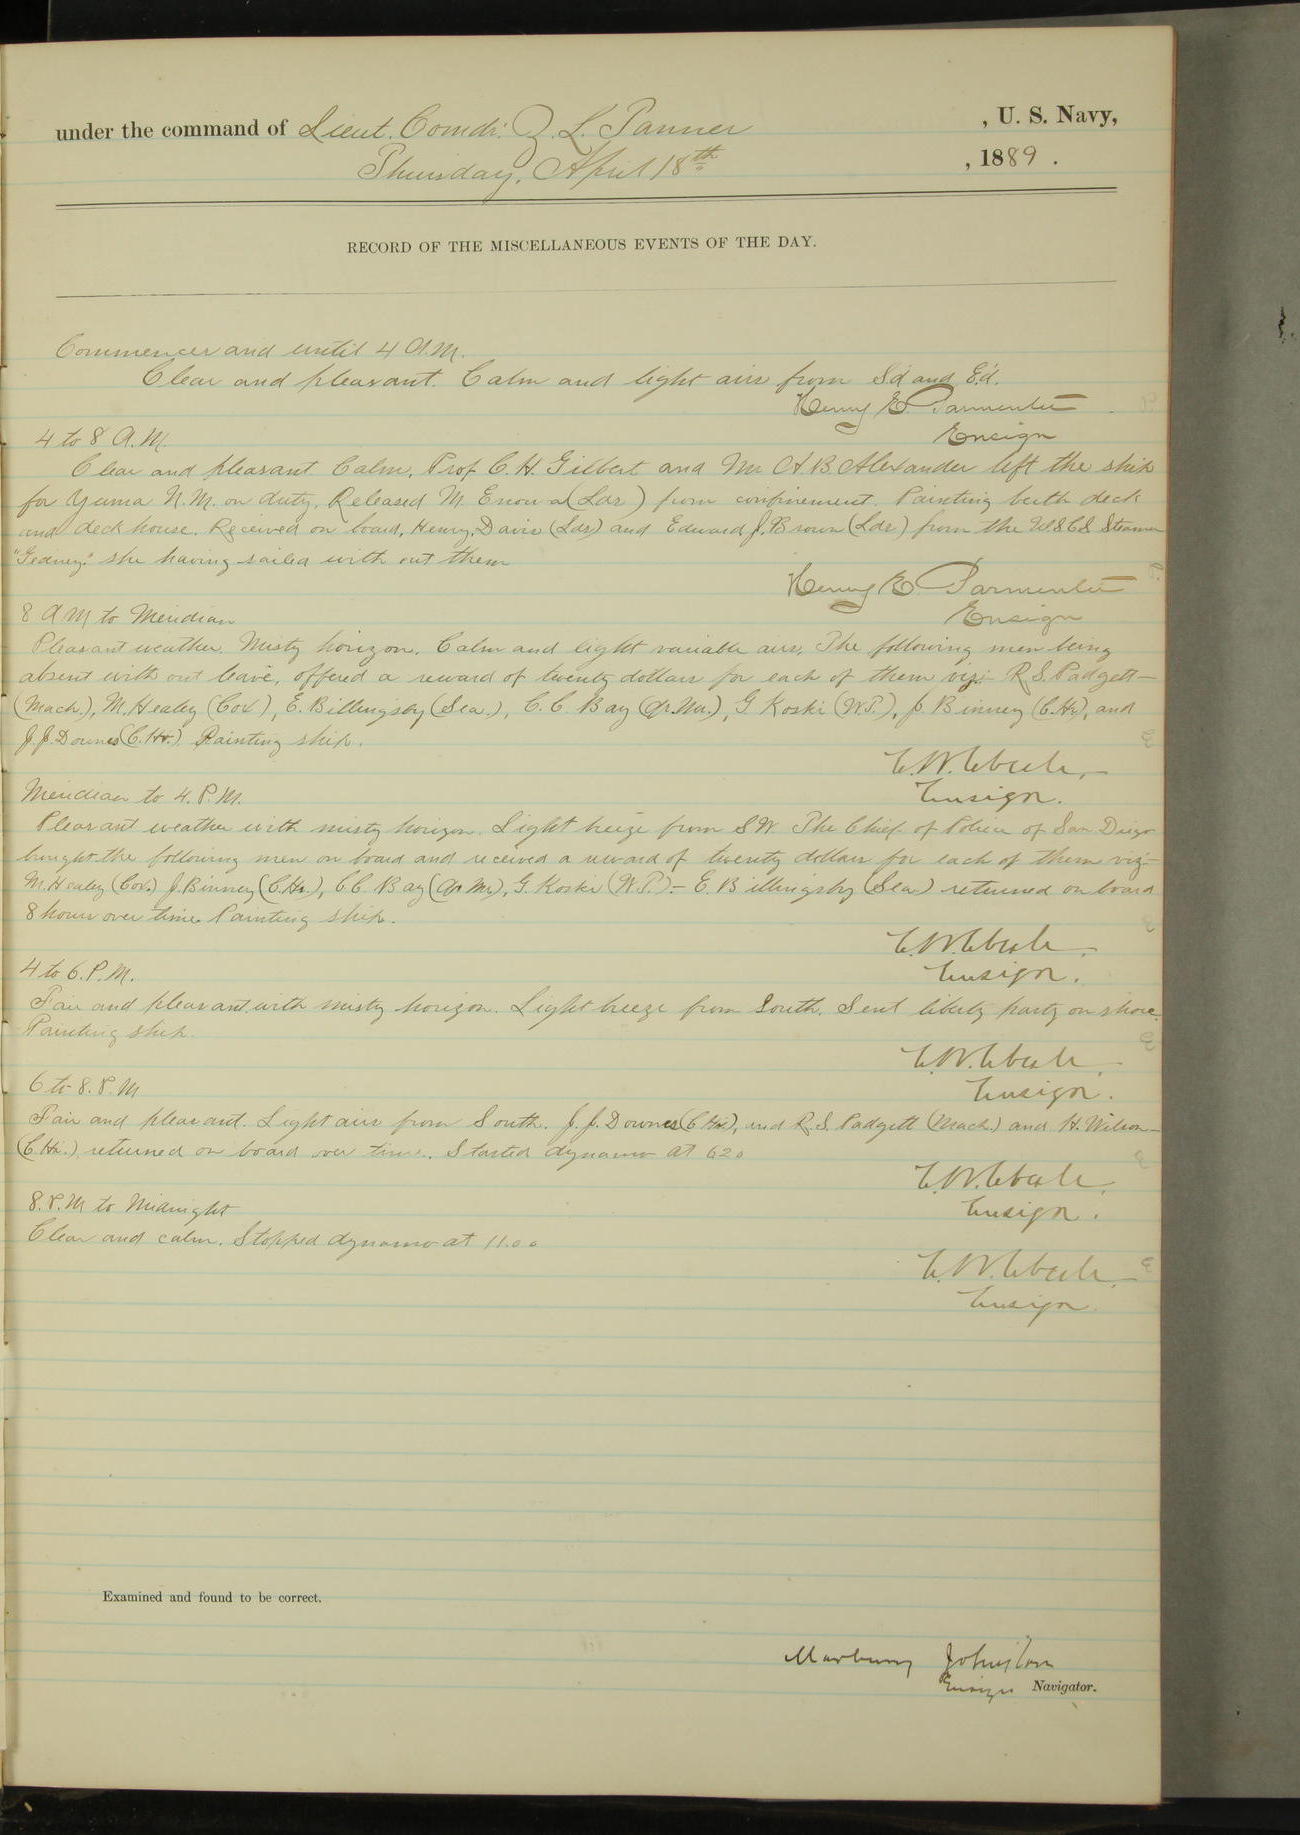 under the command of Lieut. Comdr. Z. L. Tanner , U. S. Navy,
Thursday, April 18th , 1889 .
RECORD OF THE MISCELLANEOUS EVENTS OF THE DAY.
Commences and until 4 A.M.
Clear and pleasant. Calm and light airs from Sd and Ed.
Henry E. Parmenter
Ensign
4 to 8 A.M.
Clear and pleasant Calm. Prof C. H. Gilbert and Mr A. B. Alexander left the ship
for Yuma N.M. on duty. Released M. (Lds) from confinement. Painting berth deck
and deck house. Received on board, Henry Davis (Lds) and Edward J. Brown (Lds) from the U.S.C.S Steamer
"Gedney" she having sailed with out them
Henry E. Parmenter
Ensign
8 A M to Meridian
Pleasant weather. Misty horizon. Calm and light variable airs. The following men being
absent with out leave, offered a reward of twenty dollars for each of them viz:- R. S. Padgett
(Mach.), M. Healey (Cox), E. Billingsby (Sea.), C. C. Bay (Qr. Mr.), G Koski (W.T.), J. Binney (C.Hr), and
J. J. Downes (C. Hr.) Painting ship.
E. W. Eberle,
Ensign.
Meridian to 4. P. M.
Pleasant weather with misty horizon. Light breeze from S.W. The Chief of Police of San Diego
brought the following men on board and received a reward of twenty dollars for each of them viz:-
M. Healey (Cox.) J. Binney (C. Hr.), C C. Bay (Qr Mr), G. Koski (W. T.) - E. Billingsby (Sea) returned on board
8 hours over time. Painting ship.
E. W. Eberle
Ensign.
4 to 6. P. M.
Fair and pleasant with misty horizon. Light breeze from South. Sent liberty party on shore.
Painting ship.
E. W. Eberle.
Ensign.
6 to 8. P. M
Fair and pleasant. Light airs from South. J. J. Downes (C Hr), and R. S. Padgett (Mach.) and H. Wilson
(C. Hr.) returned on board over time. Started dynamo at 620
E. W. Eberle.
Ensign.
8. P. M to Midnight
Clear and calm. Stopped dynamo at 11.00
E. W. Eberle.
Ensign.
Examined and found to be correct.
Marbury Johnston
Ensign Navigator.